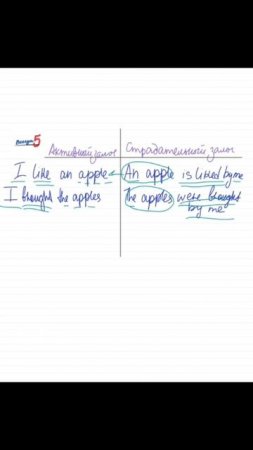 Вагери 5
Активный залог Страдательный залог
I like an apple An apple is liked by me
I bought the apples The apples were bought
by me